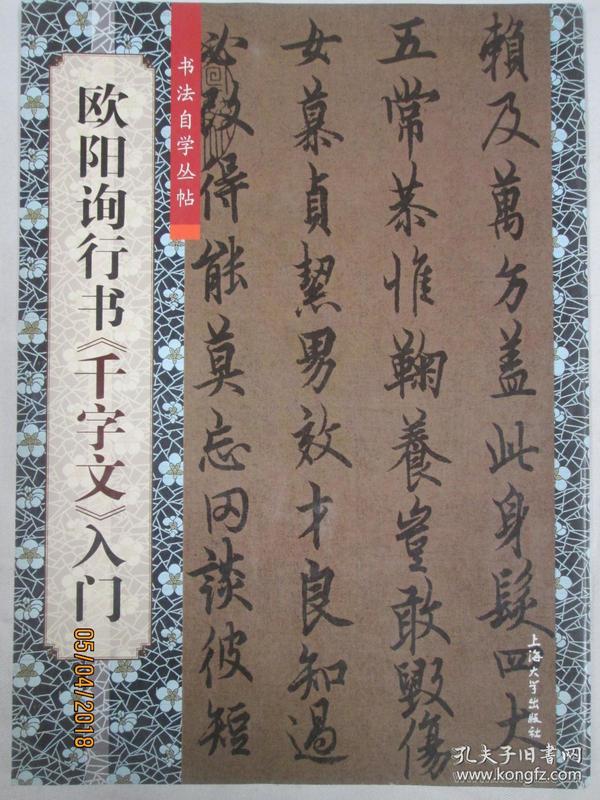 賴及萬方盖此身髮四大
五常恭惟鞠養豈敢毀傷
女慕貞絜男效才良知過
必改得能莫忘罔談彼短
书法自学丛帖
欧阳询行书《千字文》入门
上海大学出版社
05/04/2018
孔夫子旧书网
www.kongfz.com